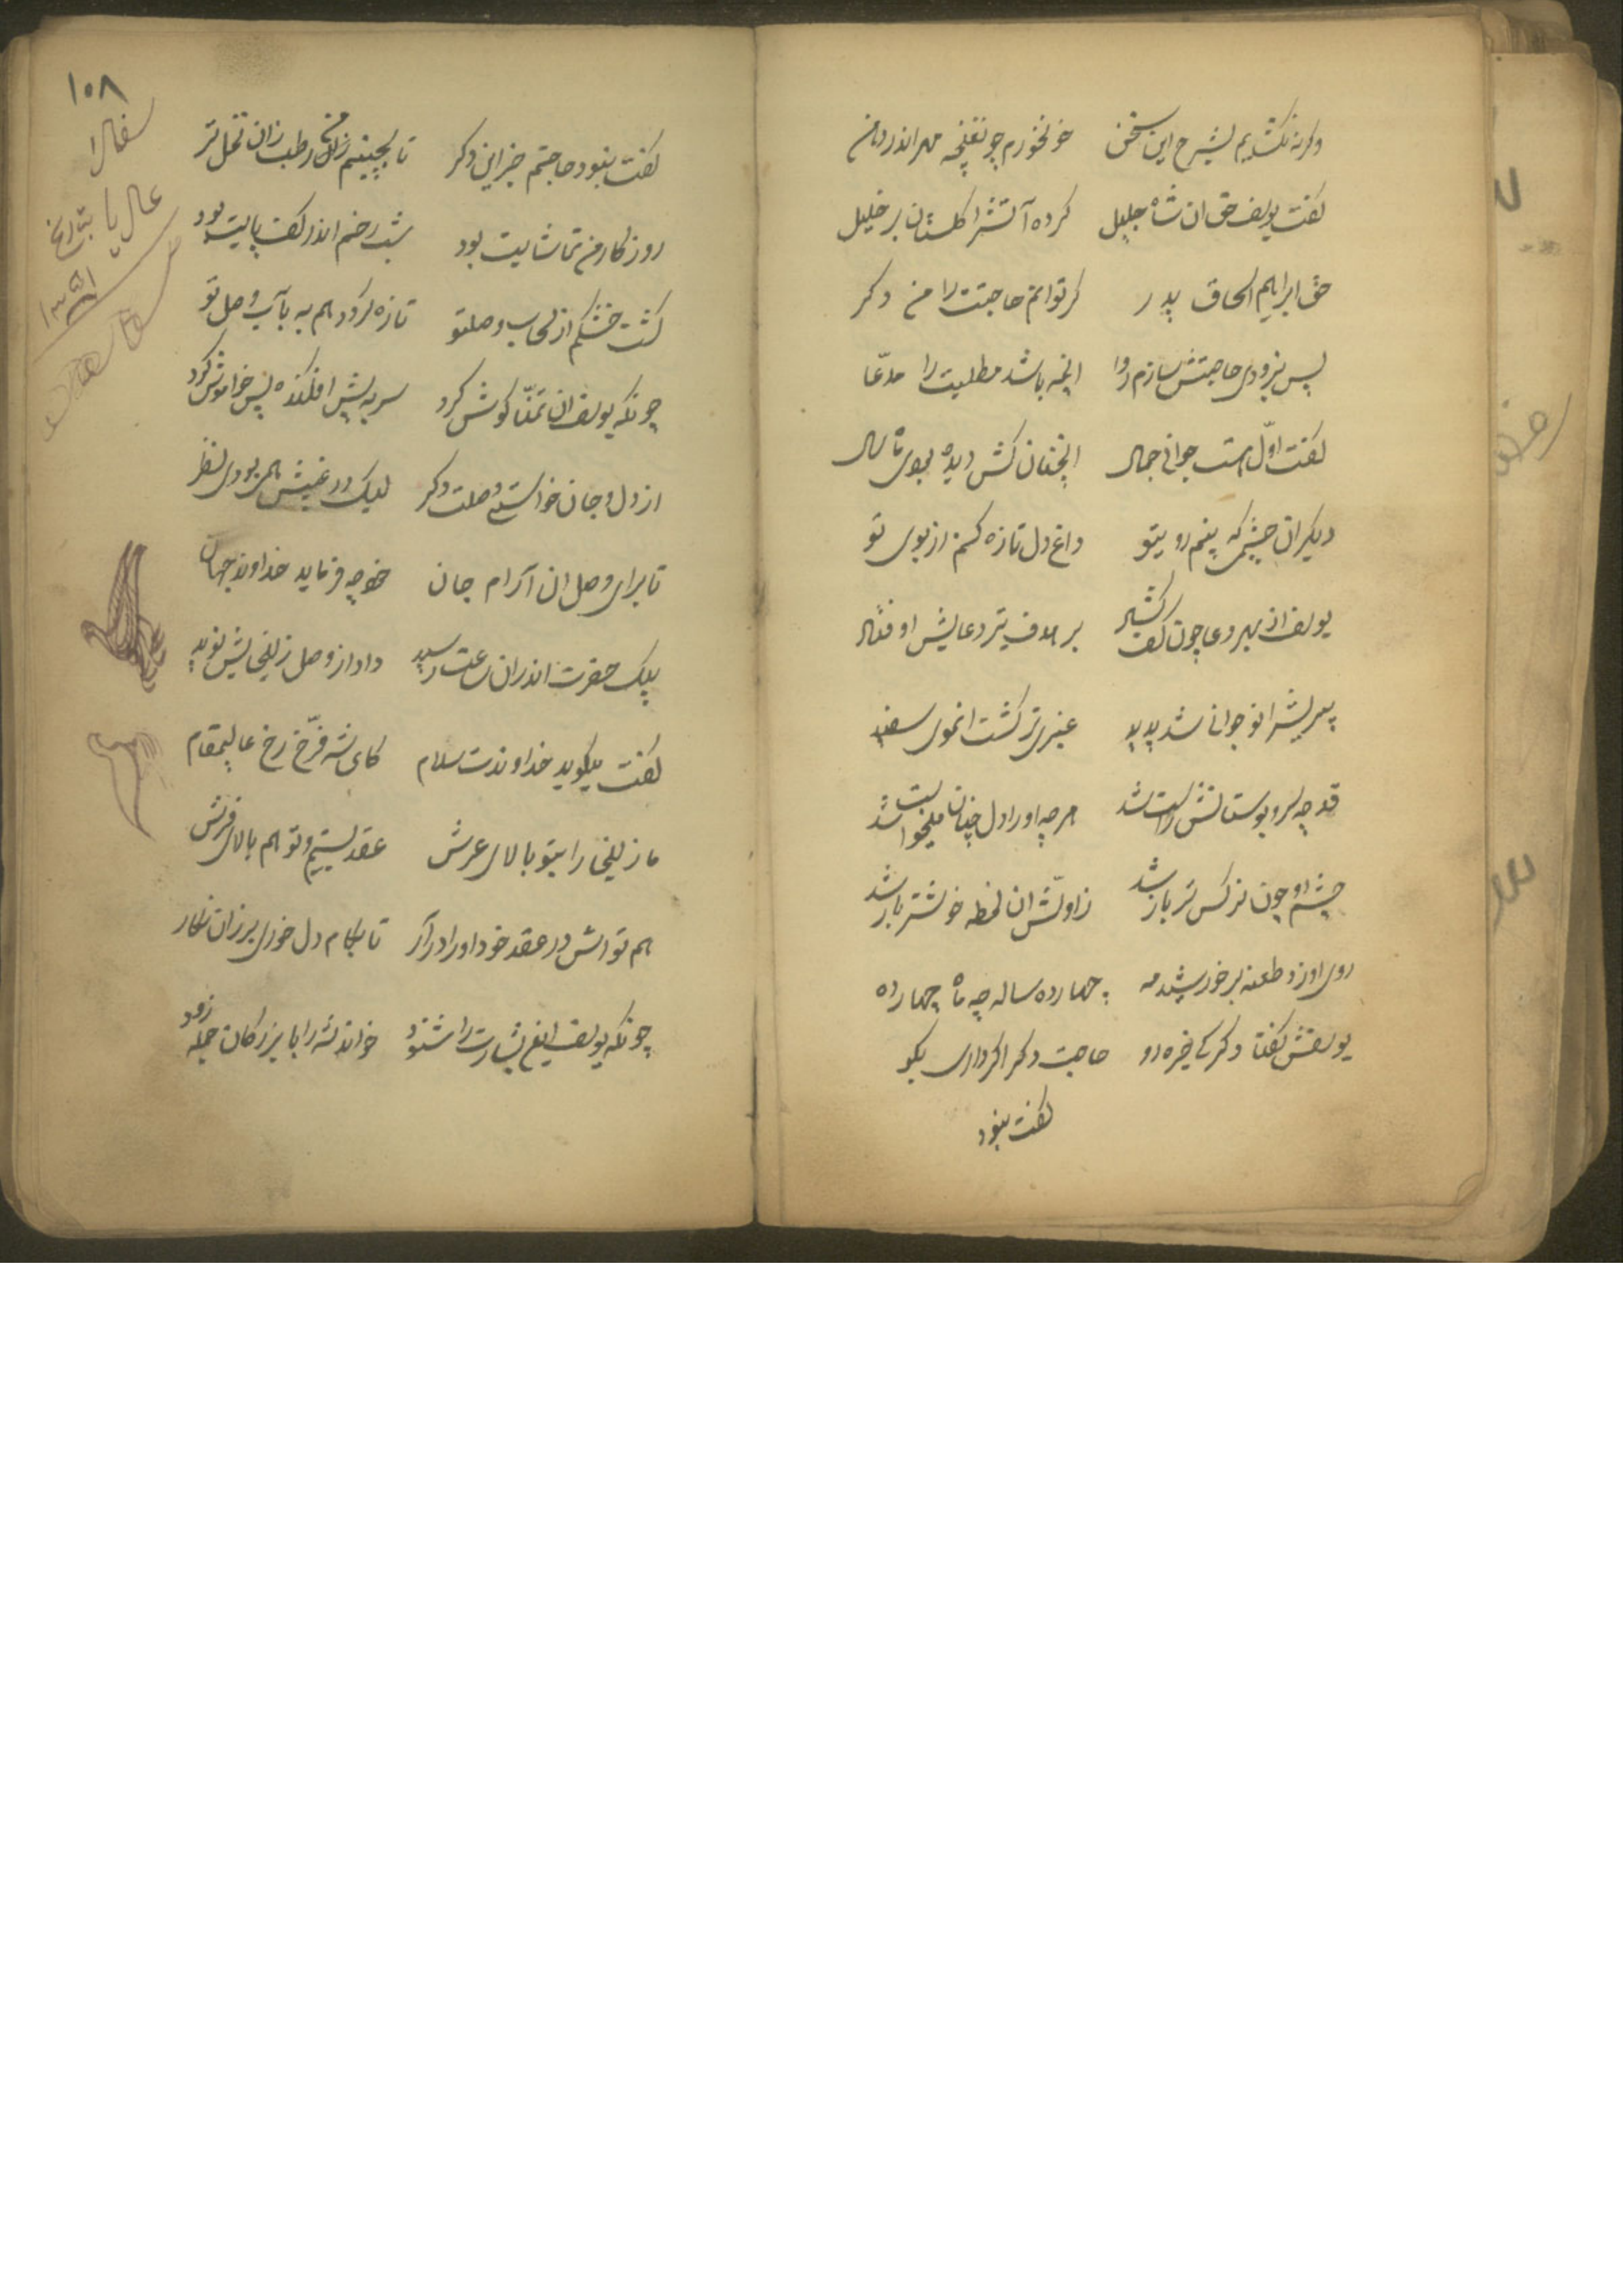 وکرنه نکشدیم بشرح این سخن خونخورم چو نغنچه مهر اندر دهن
کفت یوسف حق ان شاه جلیل کرده آتشرا کلستان بر خلیل
حق ابراهیم اسحاق پدر کر توانم حاجتت را من دکر
پس بزودی حاجتش سازم روا انچه باشد مطلبت را مدعّا
کفت اوّل هست جوانی جمال انچنان کش دیده بودی ماه سال
دیکر ان چشمی که بینم رو بتو داغ دل تازه کنم از بوی تو
یوسف از بهر دعا چون کف کشاد بر هدف تیر دعایش او فتاد
پیریشرا نو جوانی شد پدید عنبری تر کشت انموی سفید
قد چه سرو بوستانش راست شد هر چه او را دل چنان میخواست شد
چشم او چون نرکس تر باز شد ز اولّش ان لحظه خوشتر باز شد
روی او زد طعنه بر خورشید مه چهارده ساله چه ماه چهارده
یوسفش کفتا دکر کی خیره رو حاجت دکر اکر داری بکو
کفت نبود
۱۰۸
کفت نبود حاجتم جز این دکر تا بچینم رطب زان نخل تر
روز کار من تماشایت بود شب رخم اندر کف پایت بود
کشت خشکم از سحاب وصلتو تازه کردد هم به بآب وصل تو
چونکه یوسف ان تمنّا کوش کرد سر به پیش افکنده پس خواموش کرد
از دل و جان خواستی وصلت دکر لیک در غیبش همی بودی نظر
تا برای وصل ان آرام جان خود چه فرماید خداوند جهان
پیک حضرت اندر ان ساعت رسید داد از وصل زلیخایش نوید
کفت میکوید خداوندت سلام کای شه فرّخ رخ عالیمقام
ما زلیخا را بتو بالای عرش عقد بستیم و تو هم بالای فرش
هم تو اش در عقد خود او را در آر تا بکام دل خوری بر زان نکار
چونکه یوسف اینغ بشارت را شنود خواند شه را با بزرکان جمله زود
عالی بتاریخ
۱۳۵۱